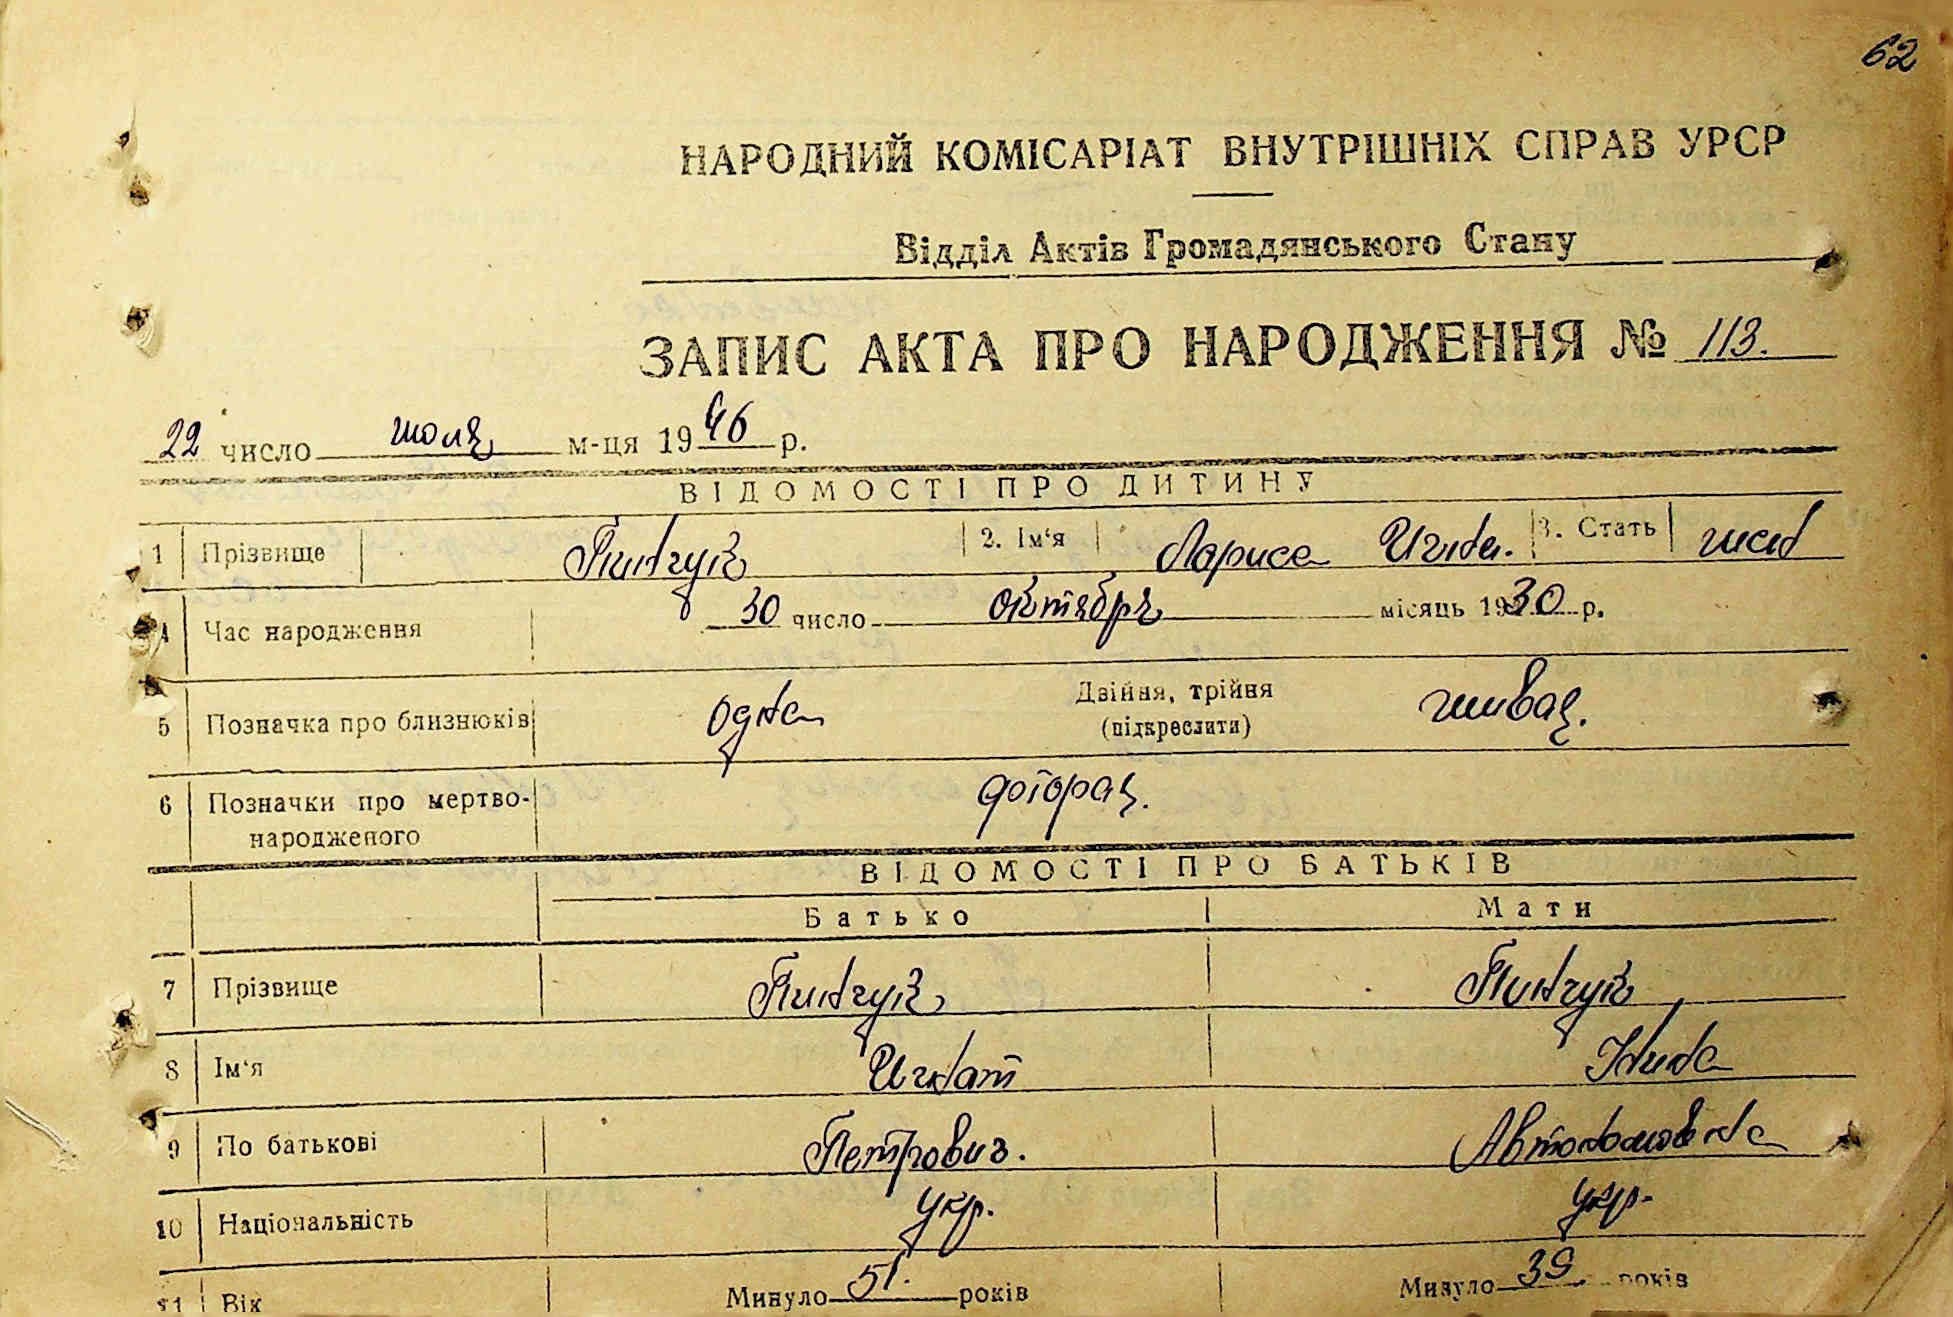 62
НАРОДНИЙ КОМІСАРІАТ ВНУТРІШНІХ СПРАВ УРСР
Відділ Актів Громадянського Стану
ЗАПИС АКТА ПРО НАРОДЖЕННЯ № 113.
22 число июля м-ця 1946 р.
ВІДОМОСТІ ПРО ДИТИНУ
1 Прізвище Пинчук 2. Ім'я Лариса Игна. 3. Стать жен
4 Час народження 30 число октября місяць 1930 р.
5 Позначка про близнюків одна Двійня, трійня живая.
(підкреслити)
6 Позначки про мертво- доторая.
народженого
ВІДОМОСТІ ПРО БАТЬКІВ
Батько Мати
7 Прізвище Пинчук Пинчук
8 Ім'я Игнат Нина
9 По батькові Петрович. Автономовна
10 Національність укр. укр.
11 Вік Минуло 51. років Минуло 39 років